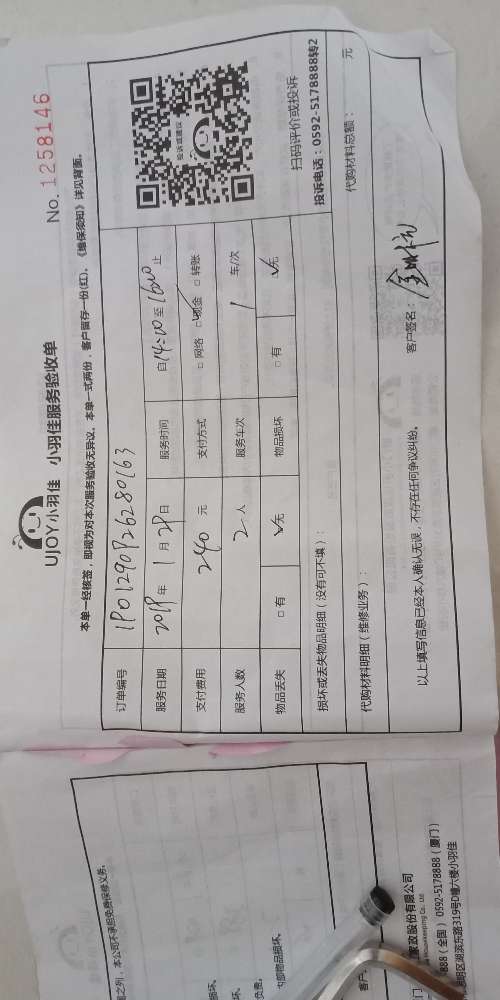 UJOY小羽佳 小羽佳服务验收单
No. 1258146
本单一经核签，即视为对本次服务验收无异议。本单一式两份，客户留存一份(红)。《维保须知》详见背面。
订单编号 1P01290926280163
服务日期 2019 年 1 月 29 日 服务时间 自 14:00 至 16:00 止
支付费用 240 元 支付方式 □ 网络 □ 现金 □ 转账
服务人数 2 人 服务车次 1 车/次
物品丢失 □ 有 □ 无 物品损坏 □ 有 □ 无
投诉或建议
扫码评价或投诉
投诉电话：0592-5178888转2
损坏或丢失物品明细（没有可不填）：
代购材料明细（维修业务）： 代购材料总额： 元
以上填写信息已经本人确认无误，不存在任何争议纠纷。
客户签名：
之列，本公司不承担免费保修义务。
损坏。
坏。
负责。
内部物品损坏。
客户
家政股份有限公司
Housekeeping Co., Ltd
888（全国） 0592-5178888（厦门）
思明区湖滨东路319号D幢六楼小羽佳